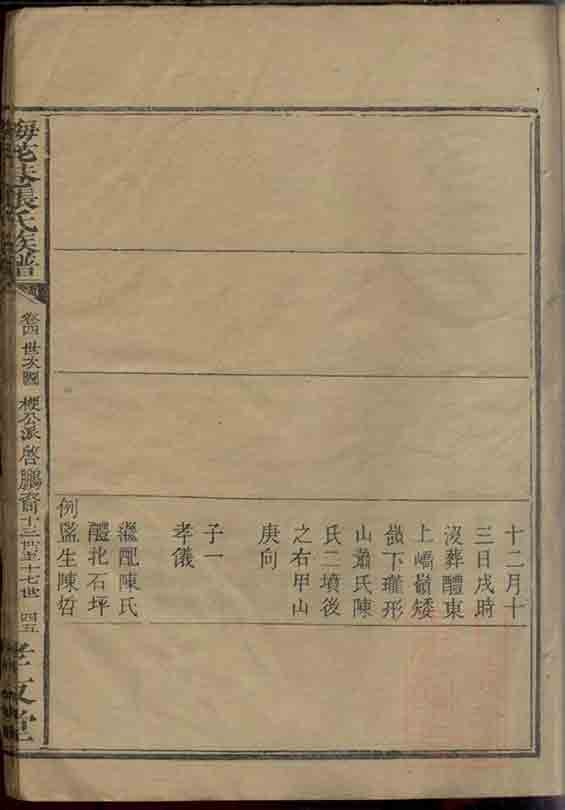 十二月十
三日戌時
沒葬醴東
上嶠嶺矮
嶺下瓏形
山蕭氏陳
氏二墳後
之右甲山
庚向
子一
孝儀
繼配陳氏
醴北石坪
例監生陳哲
梅花巷張氏族譜
卷四 世次圖 梗公派啓鵬裔十三世至十七世 四五
孝友堂